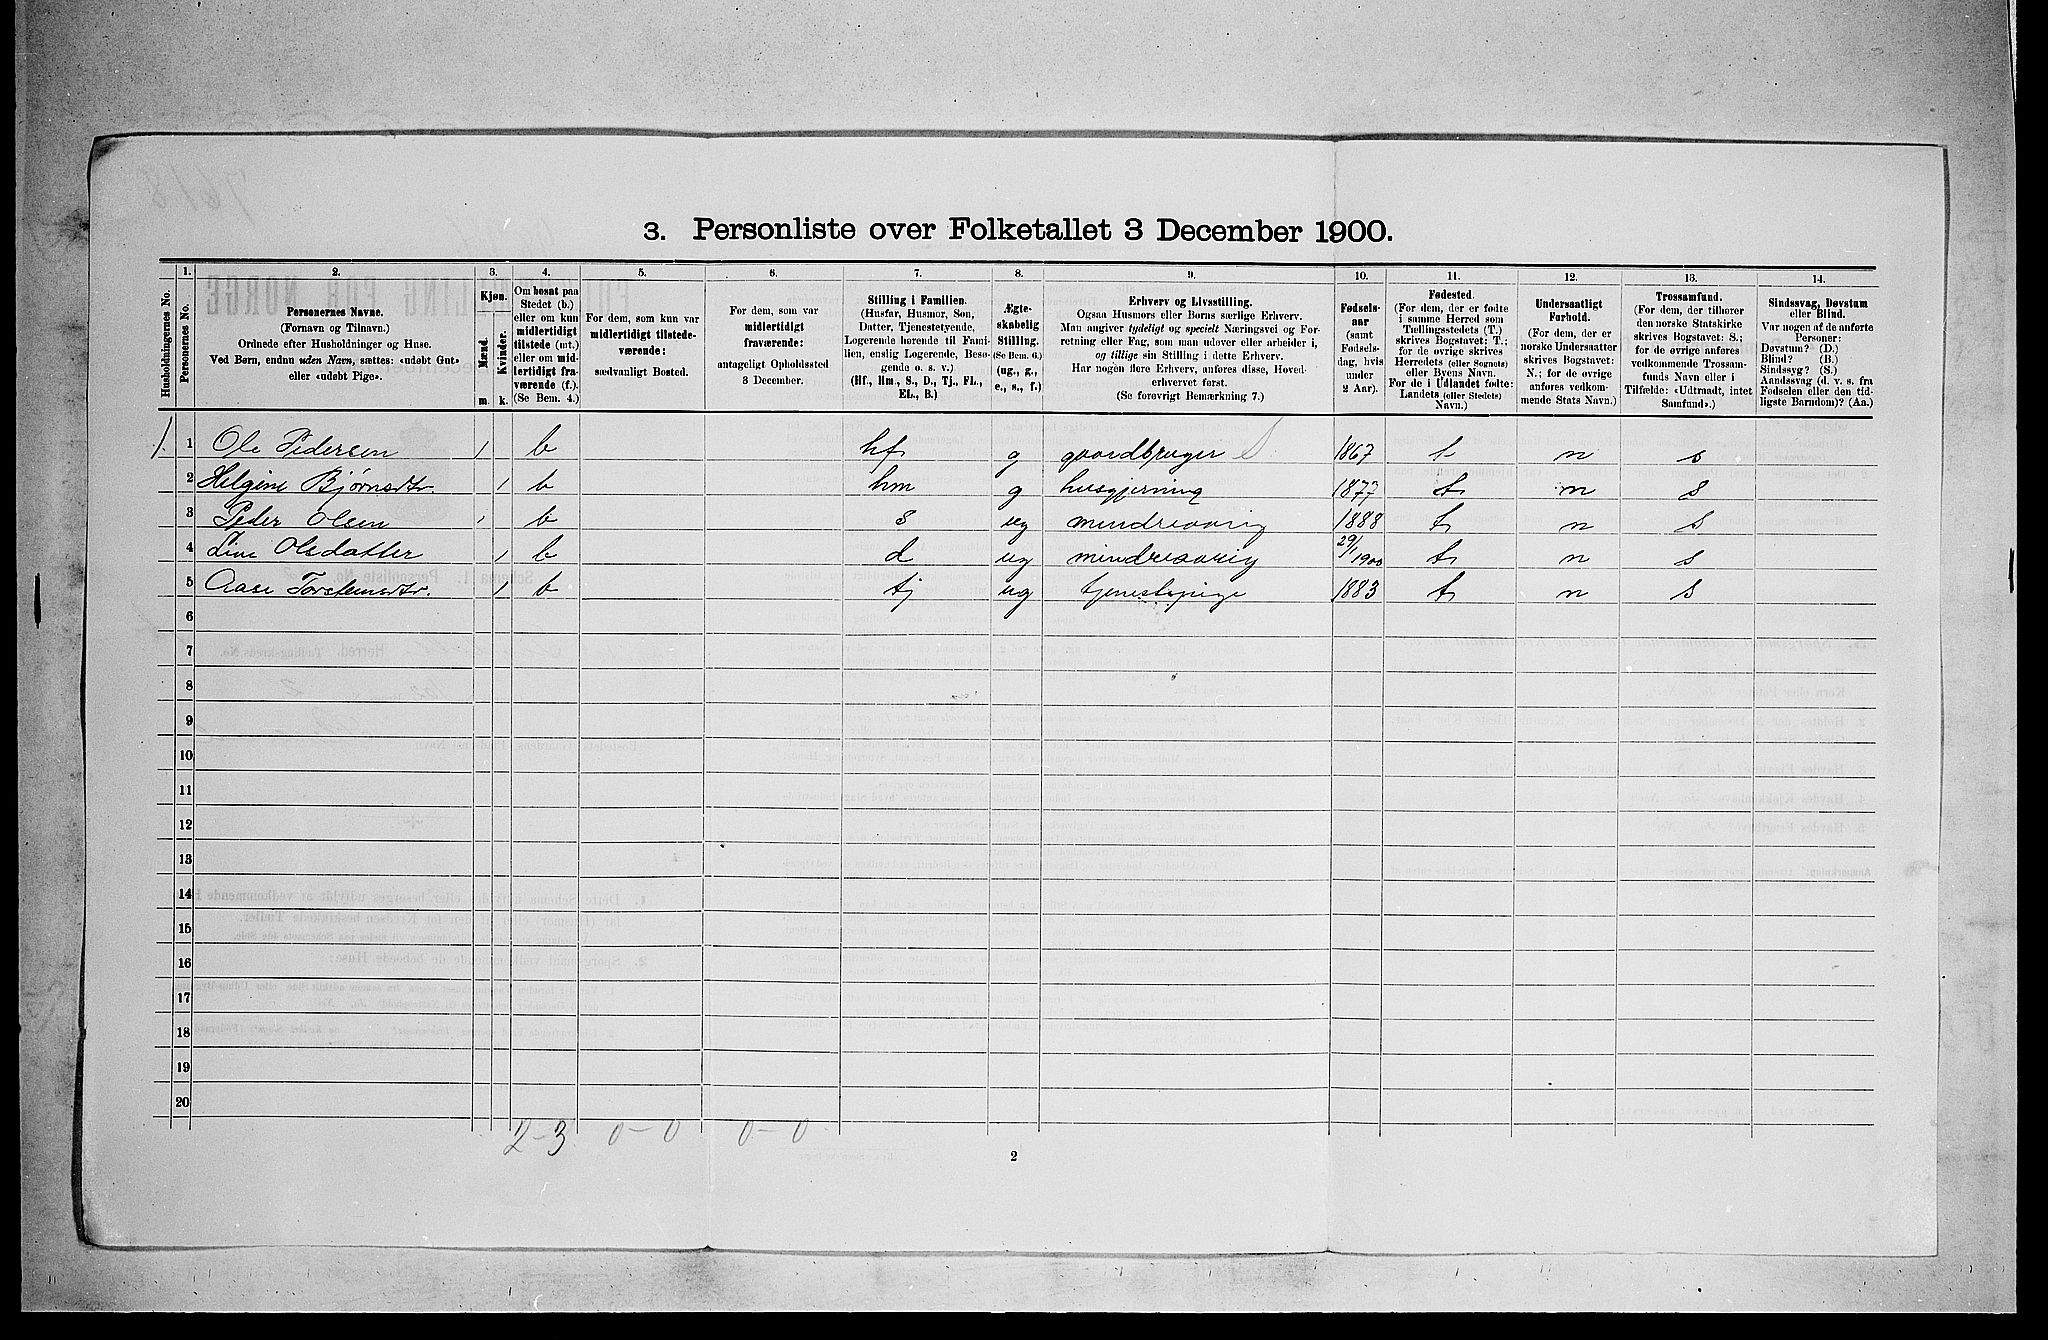 7618
3. Personliste over Folketallet 3 December 1900.
Husholdningernes No.
1. Personernes No.
2. Personernes Navne.
(Fornavn og Tilnavn.)
Ordnede efter Husholdninger og Huse.
Ved Børn, endnu uden Navn, sættes: «udøbt Gut»
eller «udøbt Pige».
3. Kjøn.
Mænd. m.
Kvinder. k.
4. Om bosat paa
Stedet (b.)
eller om kun
midlertidigt
tilstede (mt.)
eller om mid-
lertidigt fra-
værende (f.).
(Se Bem. 4.)
5. For dem, som kun var
midlertidigt tilstede-
værende:
sædvanligt Bosted.
6. For dem, som var
midlertidigt
fraværende:
antageligt Opholdssted
3 December.
7. Stilling i Familien.
(Husfar, Husmor, Søn,
Datter, Tjenestetyende,
Logerende hørende til Fami-
lien, enslig Logerende, Besø-
gende o. s. v.)
(Hf., Hm., S., D., Tj., FL.,
EL., B.)
8. Ægte-
skabelig
Stilling.
(Se Bem. 6.)
(ug., g.,
e., s., f.)
9. Erhverv og Livsstilling.
Ogsaa Husmors eller Børns særlige Erhverv.
Man angiver tydeligt og specielt Næringsvei og For-
retning eller Fag, som man udover eller arbeider i,
og tillige sin Stilling i dette Erhverv.
Har nogen flere Erhverv, anføres disse, Hoved-
erhvervet først.
(Se forøvrigt Bemærkning 7.)
10. Fødsels-
aar
(samt
Fødsels-
dag, hvis
under
2 Aar).
11. Fødested.
(For dem, der er fødte
i samme Herred som
Tællingsstedets (T.)
skrives Bogstavet: T.;
for de øvrige skrives
Herredets (eller Sognets)
eller Byens Navn.
For de i Udlandet fødte:
Landets (eller Stedets)
Navn.)
12. Undersaatligt
Forhold.
(For dem, der er
norske Undersaatter
skrives Bogstavet:
N.; for de øvrige
anføres vedkom-
mende Stats Navn.)
13. Trossamfund.
(For dem, der tilhører
den norske Statskirke
skrives Bogstavet: S.;
for de øvrige anføres
vedkommende Trossam-
funds Navn eller i
Tilfælde: «Udtraadt, intet
Samfund».)
14. Sindssvag, Døvstum
eller Blind.
Var nogen af de anførte
Personer:
Døvstum? (D.)
Blind? (B.)
Sindssyg? (S.)
Aandssvag (d. v. s. fra
Fødselen eller den tid-
ligste Barndom)? (Aa.)
1. 1 Ole Pedersen 1 b hf g gaardbruger S 1867 t n s
2 Helgine Bjørnsdtr. 1 b hm g husgjerning 1877 t n s
3 Peder Olsen 1 b s ug mindreaarig 1888 t n s
4 Live Olsdatter 1 b d ug mindreaarig 29/1 1900 t n s
5 Aase Torsteinsdtr. 1 b tj ug tjenestepige 1883 t n s
6
7
8
9
10
11
12
13
14
15
16
17
18
19
20
2-3 0-0 0-0
2